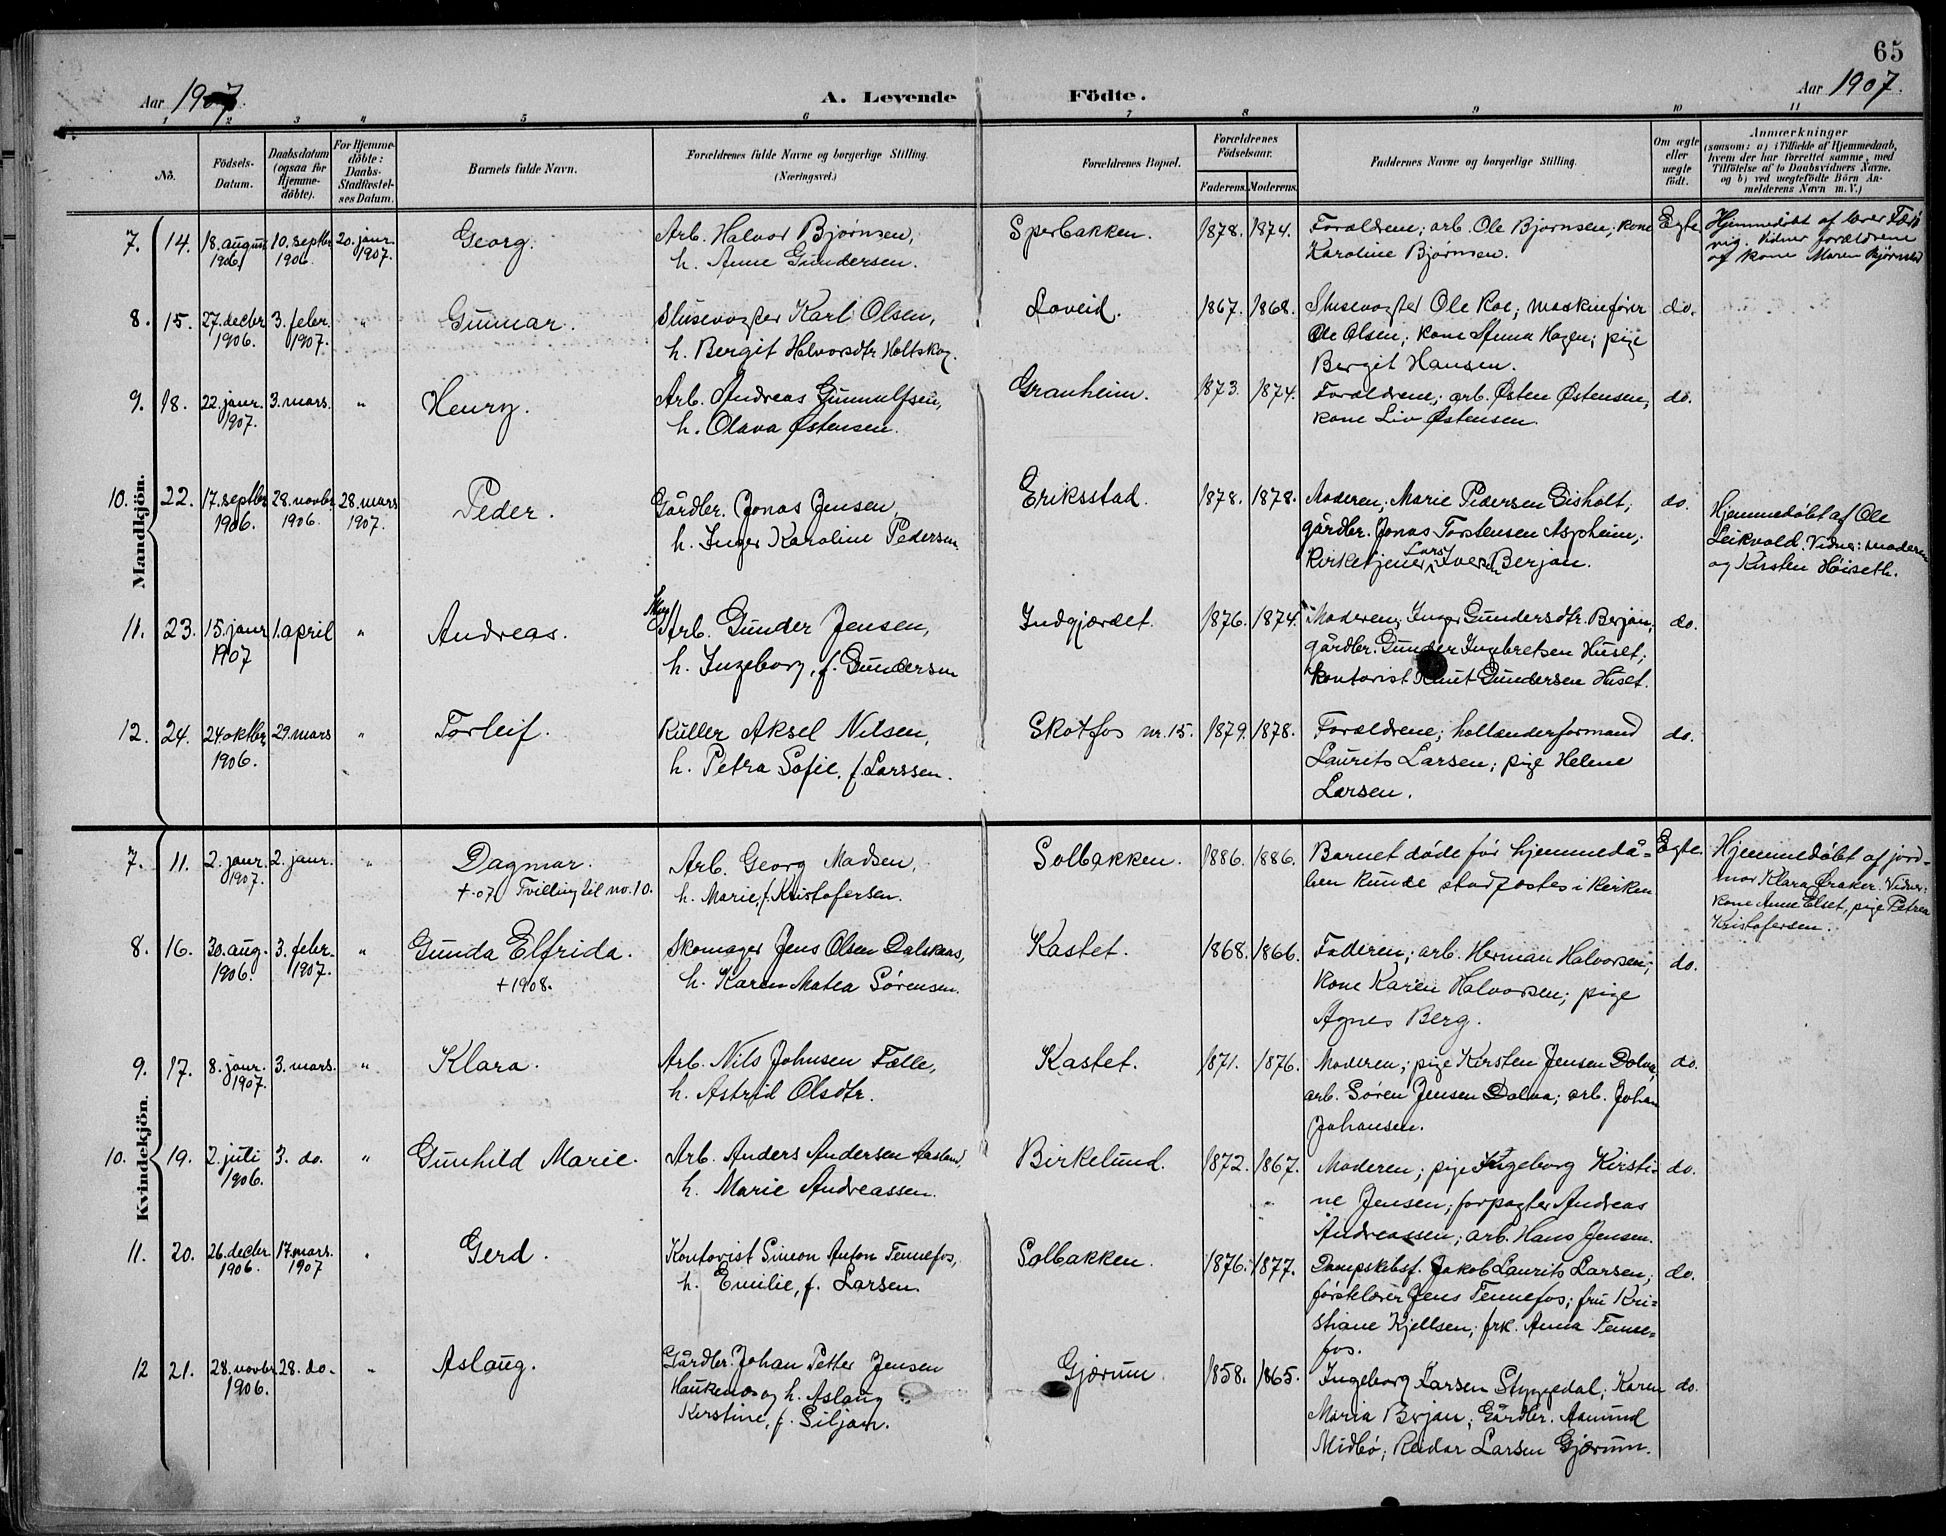 65
Aar 1907.
A. Levende Födte.
Aar 1907.
1 2 3 4 5 6 7 8 9 10 11
No.
Födsels-Datum.
Daabsdatum (ogsaa for Hjemme-döbte).
For Hjemme-döbte: Daabs-Stadfæstel-ses Datum.
Barnets fulde Navn.
Forældrenes fulde Navne og borgerlige Stilling. (Næringsvei.)
Forældrenes Bopæl.
Forældrenes Födselsaar.
Faderens. Moderens.
Faddernes Navne og borgerlige Stilling.
Om ægte eller uægte födt.
Anmærkninger
(saasom: a) i Tilfælde af Hjemmedaab,
hvem der har forrettet samme, med
Tilföielse af to Daabsvidners Navne,
og b) ved uægtefödte Börn An-
melderens Navn m. V.)
Mandkjön.
7. 14. 18. august 1906. 10. septbr 1906. 20. janr. 1907. Georg. Arb. Halvor Bjørnsen, Sperbakken. 1878. 1874. Forældrene; arb. Ole Bjørnsen; kone Egte Hjemmedøbt af lærer
h. Anne Gundersen. Karoline Bjørnsen. vig. Vidner forældrene
og kone Maren Bjørnsen
8. 15. 27. decbr 1906. 3. febr. 1907. " Gunnar. Slusevogter Karl Olsen, Løveid. 1867. 1868. Slusevogter Ole Roe; maskinfører do.
h. Bergit Halvorsdtr Holtskog. Ole Olsen; kone Anna Hagen; pige
Bergit Hansen.
9. 18. 22. janr. 1907. 3. mars. " Henry. Arb. Andreas Gunnulfsen, Granheim. 1873. 1874. Forældrene; arb. Østen Østensen, do.
h. Olava Østensen. kone Liv Østensen.
10. 22. 17. septbr 1906. 28. novbr 1906. 28. mars 1907. Peder. Gårdbr. Jonas Jensen, Eriksstad. 1878. 1878. Moderen; Marie Pedersen Gisholt; do. Hjemmedøbt af Ole
h. Inger Karoline Pedersen. gårdbr. Jonas Torstensen Aspheim; Leikvold. Vidner: moderen
kirketjener Lars Iversen Berjan. og Kirsten Høiseth.
11. 23. 15. janr 1907 1. april " Andreas. Arb. Gunder Jensen, Indgjærdet. 1876. 1874. Moderen; Inger Gundersdtr. Berjan; do.
h. Ingeborg, f. Gundersen gårdbr. Gunder Ingbretsen Huset;
kontorist Knut Gundersen Huset.
12. 24. 24. oktbr 1906. 29. mars " Torleif. Kuller Aksel Nilsen, Skotfos nr. 15. 1879. 1878. Forældrene; hollænderformand do.
h. Petra Sofie, f. Larssen. Laurits Larsen; pige Helene
Larsen.
Kvindekjön.
7. 11. 2. janr. 1907. 2. janr. " Dagmar. Arb. Georg Madsen, Solbakken. 1886. 1886. Barnet døde før hjemmedå- Egte. Hjemmedøbt af jord-
+ 07 Tvilling til no. 10. h. Marie, f. Kristofersen. ben kunde stadfæstes i kirken mor Klara Øraker. Vidner:
kone Anne Elset, pige Petrea
Kristofersen.
8. 16. 30. aug. 1906. 3. febr. 1907. " Gunda Elfrida. Skomager Jens Olsen Dalsaas, Kastet. 1868. 1866. Faderen; arb. Herman Halvorsen; do.
+ 1908. h. Karen Matea Sørensen. kone Karen Halvorsen; pige
Agnes Berg.
9. 17. 8. janr. 1907. 3. mars. " Klara. Arb. Nils Johnsen Fælle, Kastet. 1871. 1876. Moderen; pige Kirsten Jensen Dolva, do.
h. Astrid Olsdtr. arb. Søren Jensen Dolva; arb. Johan
Johansen.
10. 19. 2. juli 1906. 3. do. " Gunhild Marie. Arb. Anders Andersen Aasland, Birkelund. 1872. 1867. Moderen; pige Ingeborg Kirsti- do.
h. Marie Andreassen. ne Jensen; forpagter Andreas
Andreassen; arb. Hans Jensen.
11. 20. 26. decbr. 1906. 17. mars. 1907 " Gerd. Kontorist Simon Anton Tennefos, Solbakken. 1876. 1877. Dampskibsf. Jakob Laurits Larsen; do.
h. Emilie, f. Larsen. førstelærer Jens Tennefos; fru Kri-
stiane Kjellsen; frk. Anna Tenne-
fos.
12 21. 28. novbr 1906. 28. do. " Aslaug. Gårdbr. Johan Petter Jensen Gjærum. 1858. 1865. Ingeborg Larsen Styggedal; Karen do.
Haukenæs og h. Aslaug Maria Berjan; Gårdbr. Aamund
Kirstine, f. Siljan. Midbø; Reidar Larsen Gjærum.